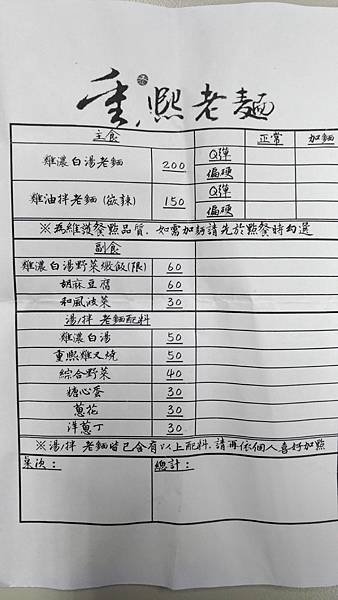 重熙老麵
主食 正常 加麵
雞濃白湯老麵 200 Q彈
偏硬
雞油拌老麵(微辣) 150 Q彈
偏硬
※為維護餐點品質，如需加麵請先於點餐時勾選
副食
雞濃白湯野菜緻飯(限) 60
胡麻豆腐 60
和風波菜 30
湯/拌 老麵配料
雞濃白湯 50
重熙雞叉燒 50
綜合野菜 40
糖心蛋 30
蔥花 30
洋蔥丁 30
※湯/拌 老麵皆已含有以上配料，請再依個人喜好加點
桌次： 總計：